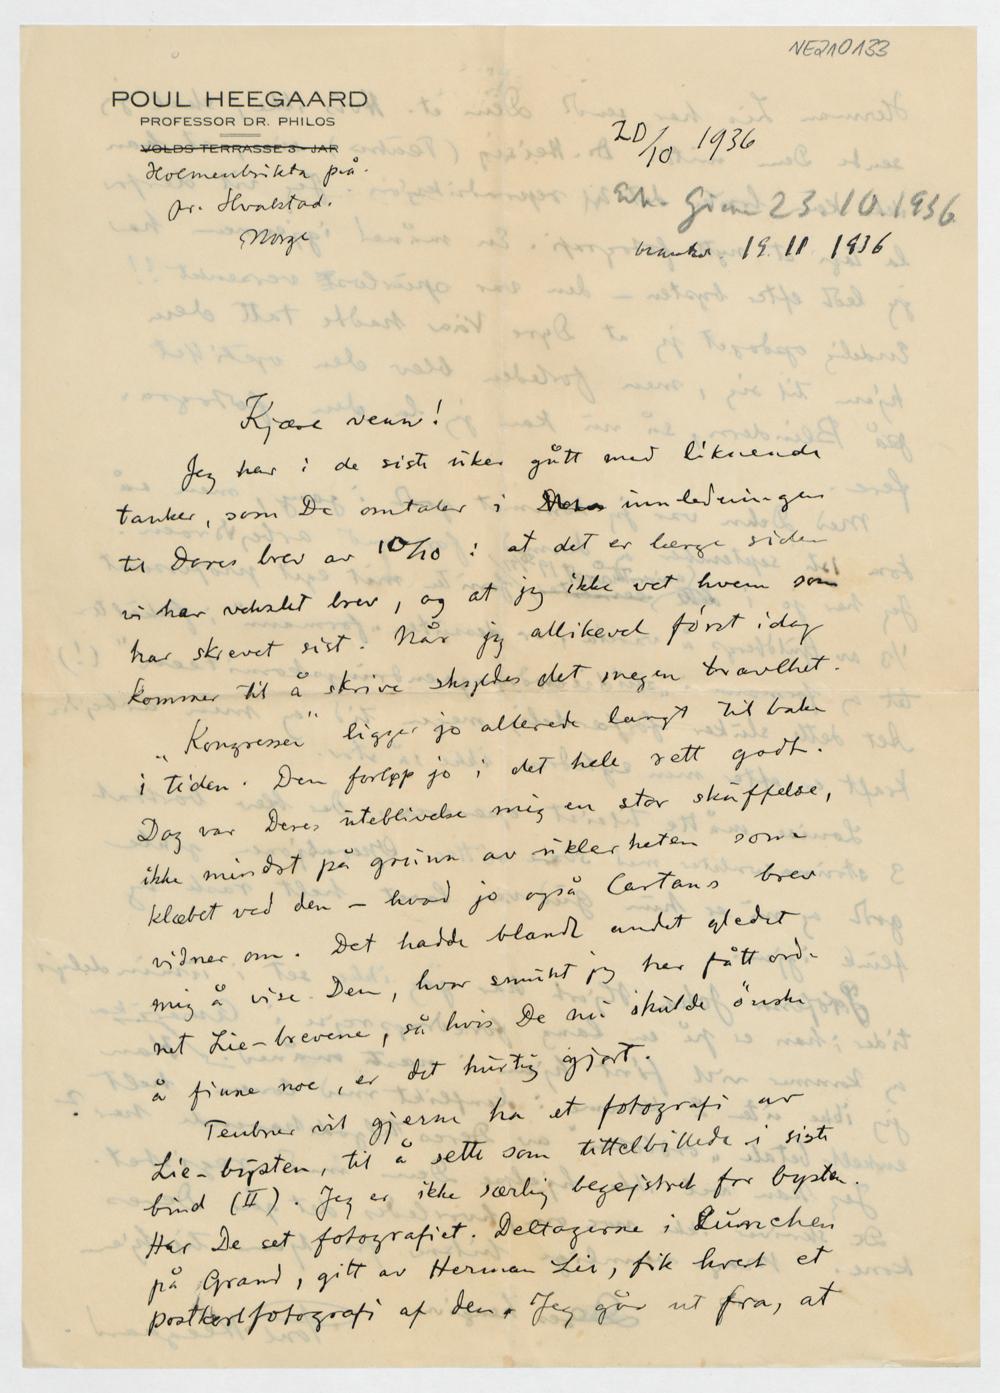 NE210133
POUL HEEGAARD
PROFESSOR DR. PHILOS
VOLDS TERRASSE 3 - JAR
Holmenbrikta på.
pr. Hvalstad.
Norge
20/10 1936
23.10.1936
19. 11 1936
Kjære venn!
Jeg har i de siste uker gått med liknende
tanker, som De omtaler i Deres innledningen
til Deres brev av 10/10 : at det er længe siden
vi har vekslet brev, og at jeg ikke vet hvem som
har skrevet sist. Når jeg allikevel först idag
kommer til å skrive skyldes det megen travlhet.
"Kongressen" ligger jo allerede langt tilbake
i tiden. Den forløp jo i det hele rett godt.
Dog var Deres uteblivelse mig en stor skuffelse,
ikke mindst på grunn av uklarheten som
klæbet ved den – hvad jo også Cartans brev
vidner om. Det hadde blandt andet gledet
mig å vise Dem, hvor smukt jeg har fått ord-
net Lie-brevene, så hvis De nu skulde önske
å finne noe, er det hurtig gjort.
Teubner vil gjerne ha et fotografi av
Lie-bysten, til å sette som tittelbillede i siste
bind (II). Jeg er ikke særlig begejstret for bysten.
Har De set fotografiet. Deltagerne i Lunchen
på Grand, gitt av Herman Lie, fik hvert et
postkortfotografi af den. Jeg går ut fra, at